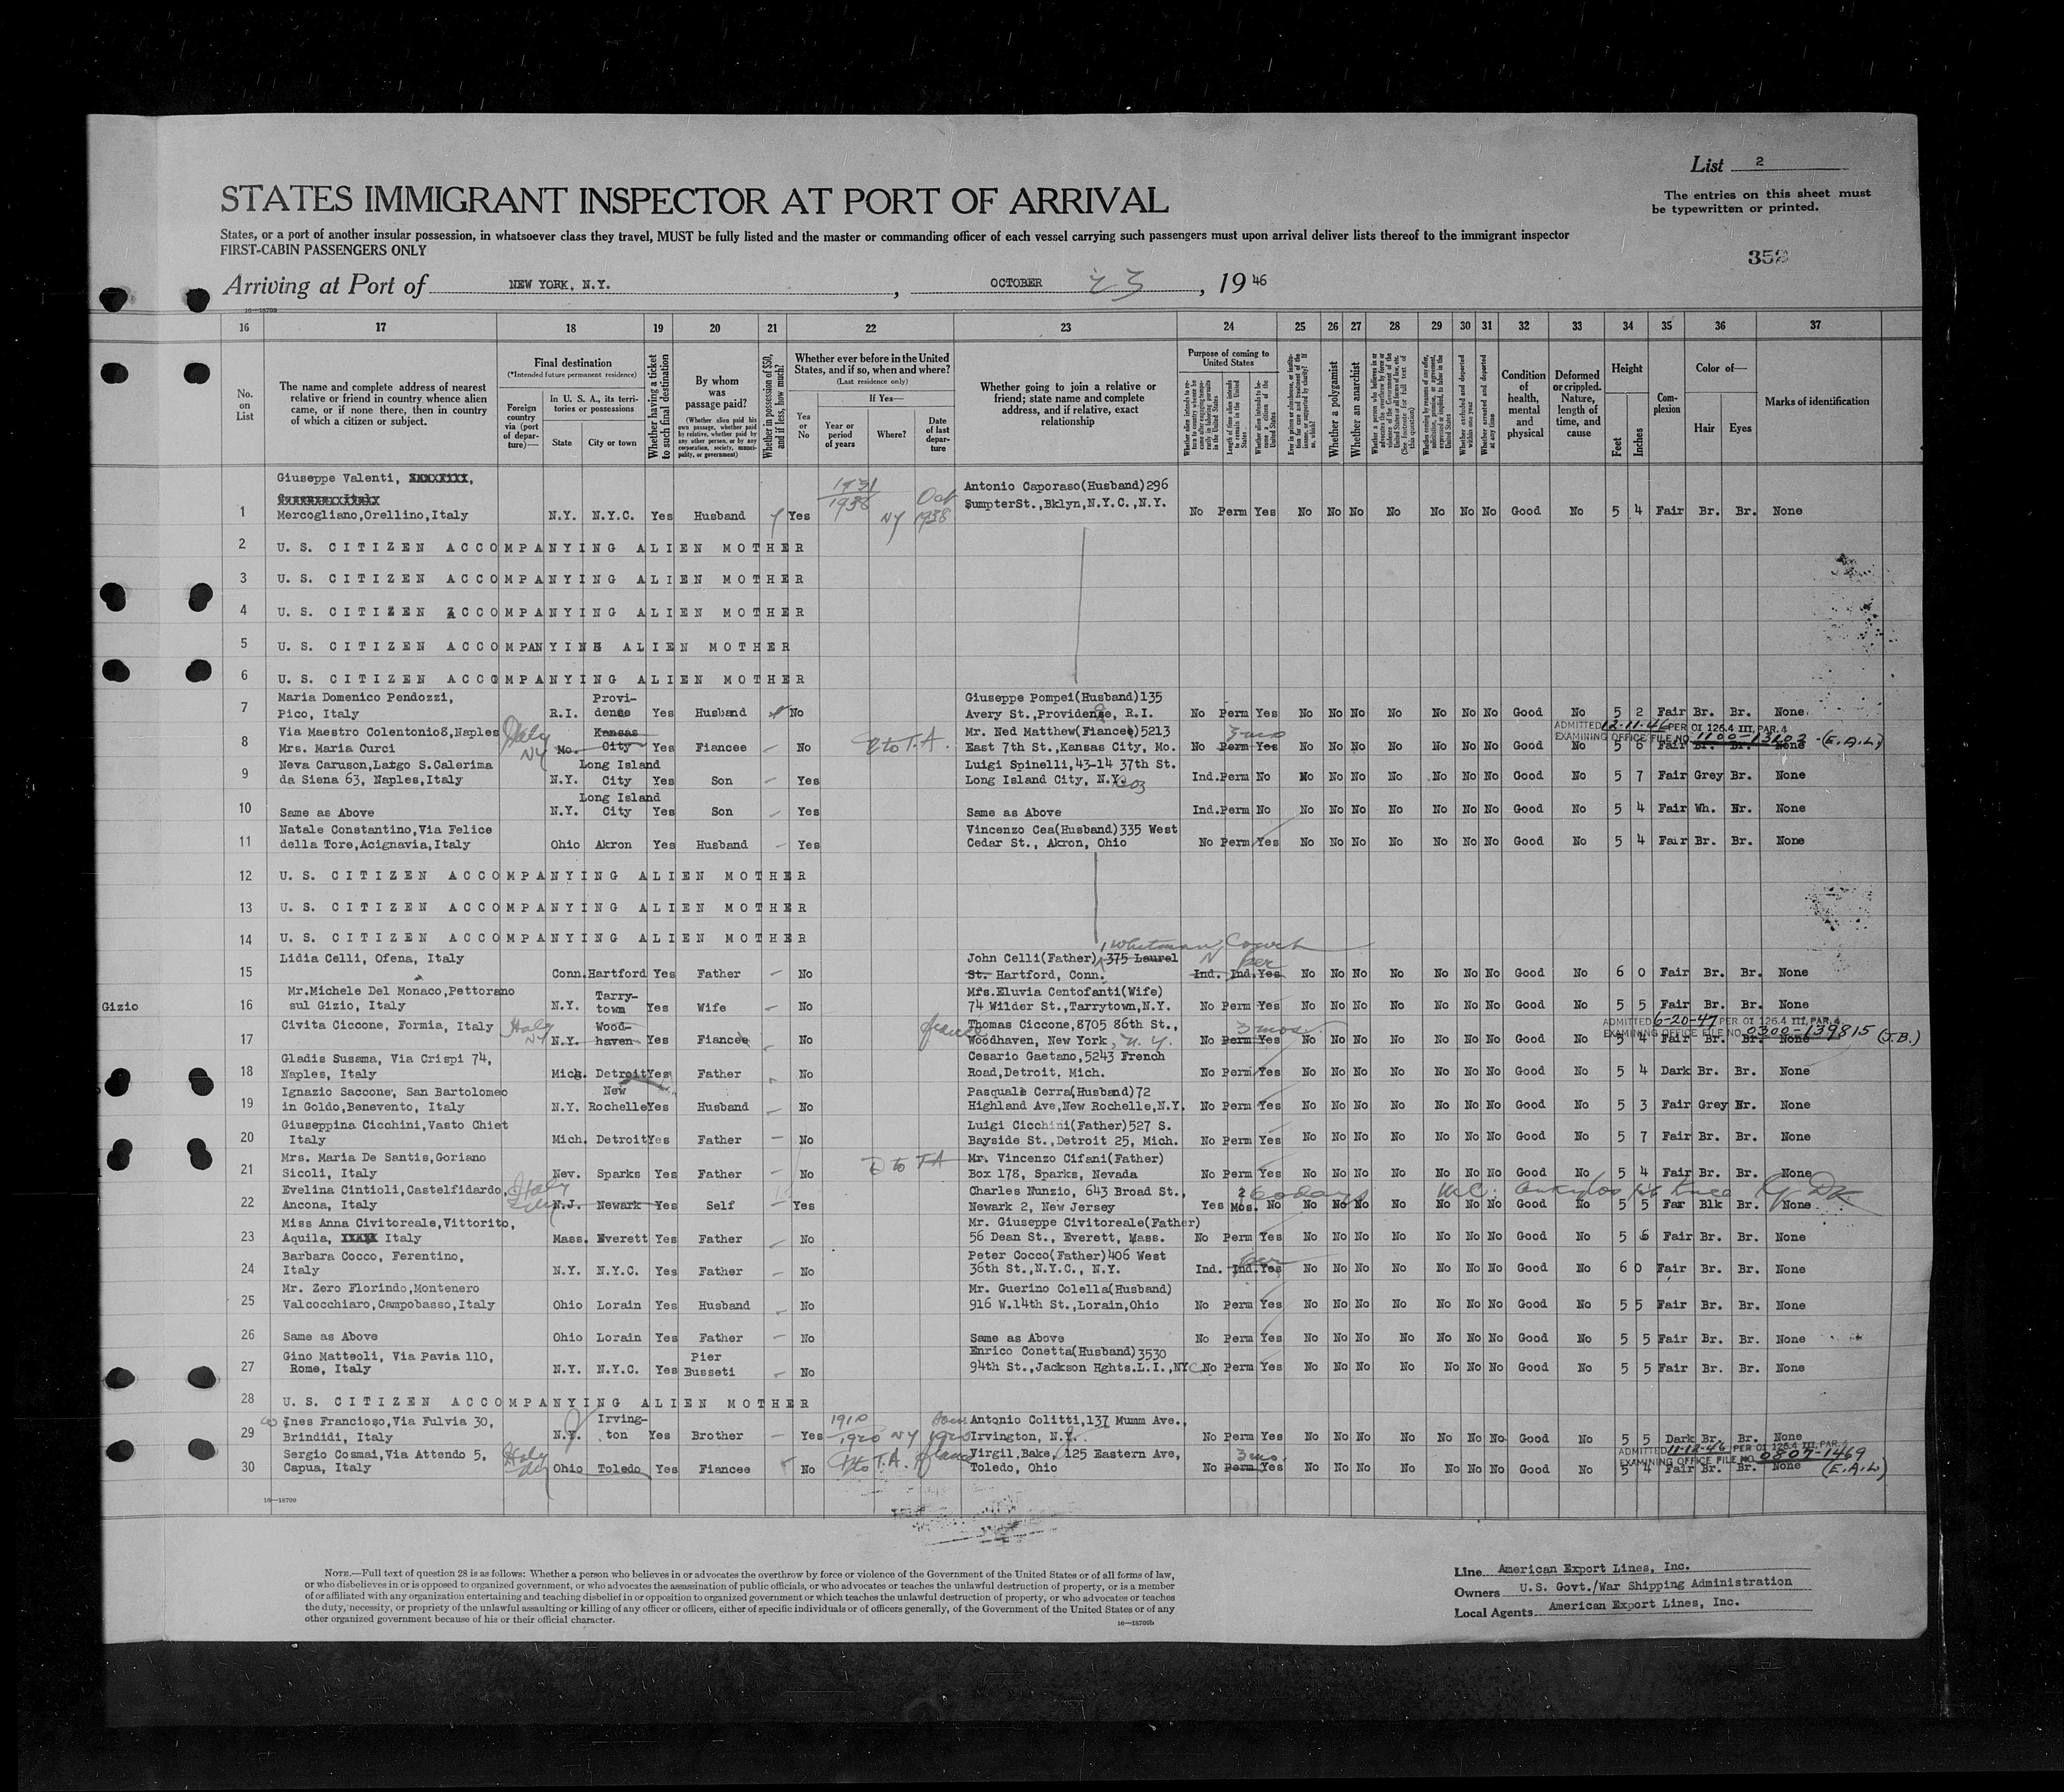 List 2
STATES IMMIGRANT INSPECTOR AT PORT OF ARRIVAL
The entries on this sheet must
be typewritten or printed.
States, or a port of another insular possession, in whatsoever class they travel, MUST be fully listed and the master or commanding officer of each vessel carrying such passengers must upon arrival deliver lists thereof to the immigrant inspector
FIRST-CABIN PASSENGERS ONLY
352
Arriving at Port of NEW YORK, N.Y. , OCTOBER 23 , 1946
16—18709
16 17 18 19 20 21 22 23 24 25 26 27 28 29 30 31 32 33 34 35 36 37
No. on List
The name and complete address of nearest relative or friend in country whence alien came, or if none there, then in country of which a citizen or subject.
Final destination
(*Intended future permanent residence)
Foreign country via (port of departure)—
In U. S. A., its territories or possessions
State
City or town
Whether having a ticket to such final destination
By whom was passage paid?
(Whether alien paid his own passage, whether paid by relative, whether paid by any other person, or by any corporation, society, municipality, or government)
Whether in possession of $50, and if less, how much?
Whether ever before in the United States, and if so, when and where?
(Last residence only)
Yes or No
If Yes—
Year or period of years
Where?
Date of last departure
Whether going to join a relative or friend; state name and complete address, and if relative, exact relationship
Purpose of coming to United States
Whether a polygamist
Whether an anarchist
Condition of health, mental and physical
Deformed or crippled. Nature, length of time, and cause
Height
Feet
Inches
Complexion
Color of—
Hair
Eyes
Marks of identification
Giuseppe Valenti,
1931 1938 Oct
Antonio Caporaso(Husband)296
SumpterSt.,Bklyn,N.Y.C.,N.Y.
1 Mercogliano,Orellino,Italy N.Y. N.Y.C. Yes Husband Yes NY 1938 No Perm Yes No No No No No No No Good No 5 4 Fair Br. Br. None
2 U. S. CITIZEN ACCOMPANYING ALIEN MOTHER
3 U. S. CITIZEN ACCOMPANYING ALIEN MOTHER
4 U. S. CITIZEN ACCOMPANYING ALIEN MOTHER
5 U. S. CITIZEN ACCOMPANYING ALIEN MOTHER
6 U. S. CITIZEN ACCOMPANYING ALIEN MOTHER
Maria Domenico Pendozzi, Provi- Giuseppe Pompei(Husband)135
7 Pico, Italy R.I. dence Yes Husband No Avery St.,Providence, R.I. No Perm Yes No No No No No No No Good No 5 2 Fair Br. Br. None
ADMITTED 12-11-46 PER OI 126.4 III, PAR. 4
EXAMINING OFFICE FILE NO. 1100-13202 (E.A.L)
Via Maestro Colentonio8,Naples Italy Kansas Mr. Ned Matthew(Fiancee)5213 3 mos
8 Mrs. Maria Curci NY Mo. City Yes Fiancee No to T.A. East 7th St.,Kansas City, Mo. No Perm Yes No No No No No No No Good No 5 6 Fair Br. Br. None
Neva Caruson,Largo S.Calerima Long Island Luigi Spinelli,43-14 37th St.
9 da Siena 63, Naples,Italy N.Y. City Yes Son Yes Long Island City, N.Y. Ind.Perm No No No No No No No No Good No 5 7 Fair Grey Br. None
Long Island
10 Same as Above N.Y. City Yes Son Yes Same as Above Ind.Perm No No No No No No No No Good No 5 4 Fair Wh. Br. None
Natale Constantino,Via Felice Vincenzo Cea(Husband)335 West
11 della Tore,Acignavia,Italy Ohio Akron Yes Husband Yes Cedar St., Akron, Ohio No Perm Yes No No No No No No No Good No 5 4 Fair Br. Br. None
12 U. S. CITIZEN ACCOMPANYING ALIEN MOTHER
13 U. S. CITIZEN ACCOMPANYING ALIEN MOTHER
14 U. S. CITIZEN ACCOMPANYING ALIEN MOTHER
1 Whitman Court
Lidia Celli, Ofena, Italy John Celli(Father) 375 Laurel N Per
15 Conn.Hartford Yes Father No St. Hartford, Conn. Ind. Ind.Yes No No No No No No No Good No 6 0 Fair Br. Br. None
Mr.Michele Del Monaco,Pettorano Tarry- Mrs.Eluvia Centofanti(Wife)
Gizio 16 sul Gizio, Italy N.Y. town Yes Wife No 74 Wilder St.,Tarrytown,N.Y. No Perm Yes No No No No No No No Good No 5 5 Fair Br. Br. None
ADMITTED 6-20-47 PER OI 126.4 III, PAR. 4
EXAMINING OFFICE FILE NO. 0300-139815 (J.B.)
Civita Ciccone, Formia, Italy Italy Wood- fiance Thomas Ciccone,8705 86th St., 3 mos.
17 NY N.Y. haven Yes Fiancee No Woodhaven, New York, N.Y. No Perm Yes No No No No No No No Good No 5 4 Fair Br. Br. None
Gladis Susama, Via Crispi 74, Cesario Gaetano,5243 French
18 Naples, Italy Mich. Detroit Yes Father No Road,Detroit. Mich. No Perm Yes No No No No No No No Good No 5 4 Dark Br. Br. None
Ignazio Saccone, San Bartolomeo New Pasquale Cerra(Husband)72
19 in Goldo,Benevento, Italy N.Y. Rochelle Yes Husband No Highland Ave,New Rochelle,N.Y. No Perm Yes No No No No No No No Good No 5 3 Fair Grey Br. None
Giuseppina Cicchini,Vasto Chiet Luigi Cicchini(Father)527 S.
20 Italy Mich. Detroit Yes Father No Bayside St.,Detroit 25, Mich. No Perm Yes No No No No No No No Good No 5 7 Fair Br. Br. None
Mrs. Maria De Santis,Goriano D to TA Mr. Vincenzo Cifani(Father)
21 Sicoli, Italy Nev. Sparks Yes Father No Box 178, Sparks, Nevada No Perm Yes No No No No No No No Good No 5 4 Fair Br. Br. None
Evelina Cintioli,Castelfidardo, Italy Charles Nunzio, 643 Broad St., 2 60 days
22 Ancona, Italy N.J. Newark Yes Self Yes Newark 2, New Jersey Yes Mos. No No No No No No No No Good No 5 5 Far Blk Br. None
Miss Anna Civitoreale,Vittorito, Mr. Giuseppe Civitoreale(Father)
23 Aquila, Italy Mass. Everett Yes Father No 56 Dean St., Everett, Mass. No Perm Yes No No No No No No No Good No 5 6 Fair Br. Br. None
Barbara Cocco, Ferentino, Peter Cocco(Father)406 West
24 Italy N.Y. N.Y.C. Yes Father No 36th St.,N.Y.C., N.Y. Ind. Ind.Yes No No No No No No No Good No 6 0 Fair Br. Br. None
Mr. Zero Florindo,Montenero Mr. Guerino Colella(Husband)
25 Valcocchiaro,Campobasso,Italy Ohio Lorain Yes Husband No 916 W.14th St.,Lorain,Ohio No Perm Yes No No No No No No No Good No 5 5 Fair Br. Br. None
26 Same as Above Ohio Lorain Yes Father No Same as Above No Perm Yes No No No No No No No Good No 5 5 Fair Br. Br. None
Gino Matteoli, Via Pavia 110, Pier Enrico Conetta(Husband)3530
27 Rome, Italy N.Y. N.Y.C. Yes Busseti No 94th St.,Jackson Hghts.L.I.,NYC No Perm Yes No No No No No No No Good No 5 5 Fair Br. Br. None
28 U. S. CITIZEN ACCOMPANYING ALIEN MOTHER
Ines Francioso,Via Fulvia 30, Irving- 1910 Antonio Colitti,137 Mumm Ave.,
29 Brindidi, Italy N.Y. ton Yes Brother Yes 1920 NY 1920 Irvington, N.Y. No Perm Yes No No No No No No No Good No 5 5 Dark Br. Br. None
ADMITTED 11-12-46 PER OI 126.4 III, PAR. 4
EXAMINING OFFICE FILE NO. 0807-1469 (E.A.L)
Sergio Cosmai,Via Attendo 5, Italy to T.A. fiance Virgil,Bake, 125 Eastern Ave, 3 mos.
30 Capua, Italy Ohio Toledo Yes Fiancee No Toledo, Ohio No Perm Yes No No No No No No No Good No 5 4 Fair Br. Br. None
16—18709
NOTE.—Full text of question 28 is as follows: Whether a person who believes in or advocates the overthrow by force or violence of the Government of the United States or of all forms of law,
or who disbelieves in or is opposed to organized government, or who advocates the assassination of public officials, or who advocates or teaches the unlawful destruction of property, or is a member
of or affiliated with any organization entertaining and teaching disbelief in or opposition to organized government or which teaches the unlawful destruction of property, or who advocates or teaches
the duty, necessity, or propriety of the unlawful assaulting or killing of any officer or officers, either of specific individuals or of officers generally, of the Government of the United States or of any
other organized government because of his or their official character.
16—18709b
Line American Export Lines, Inc.
Owners U.S. Govt./War Shipping Administration
Local Agents American Export Lines, Inc.